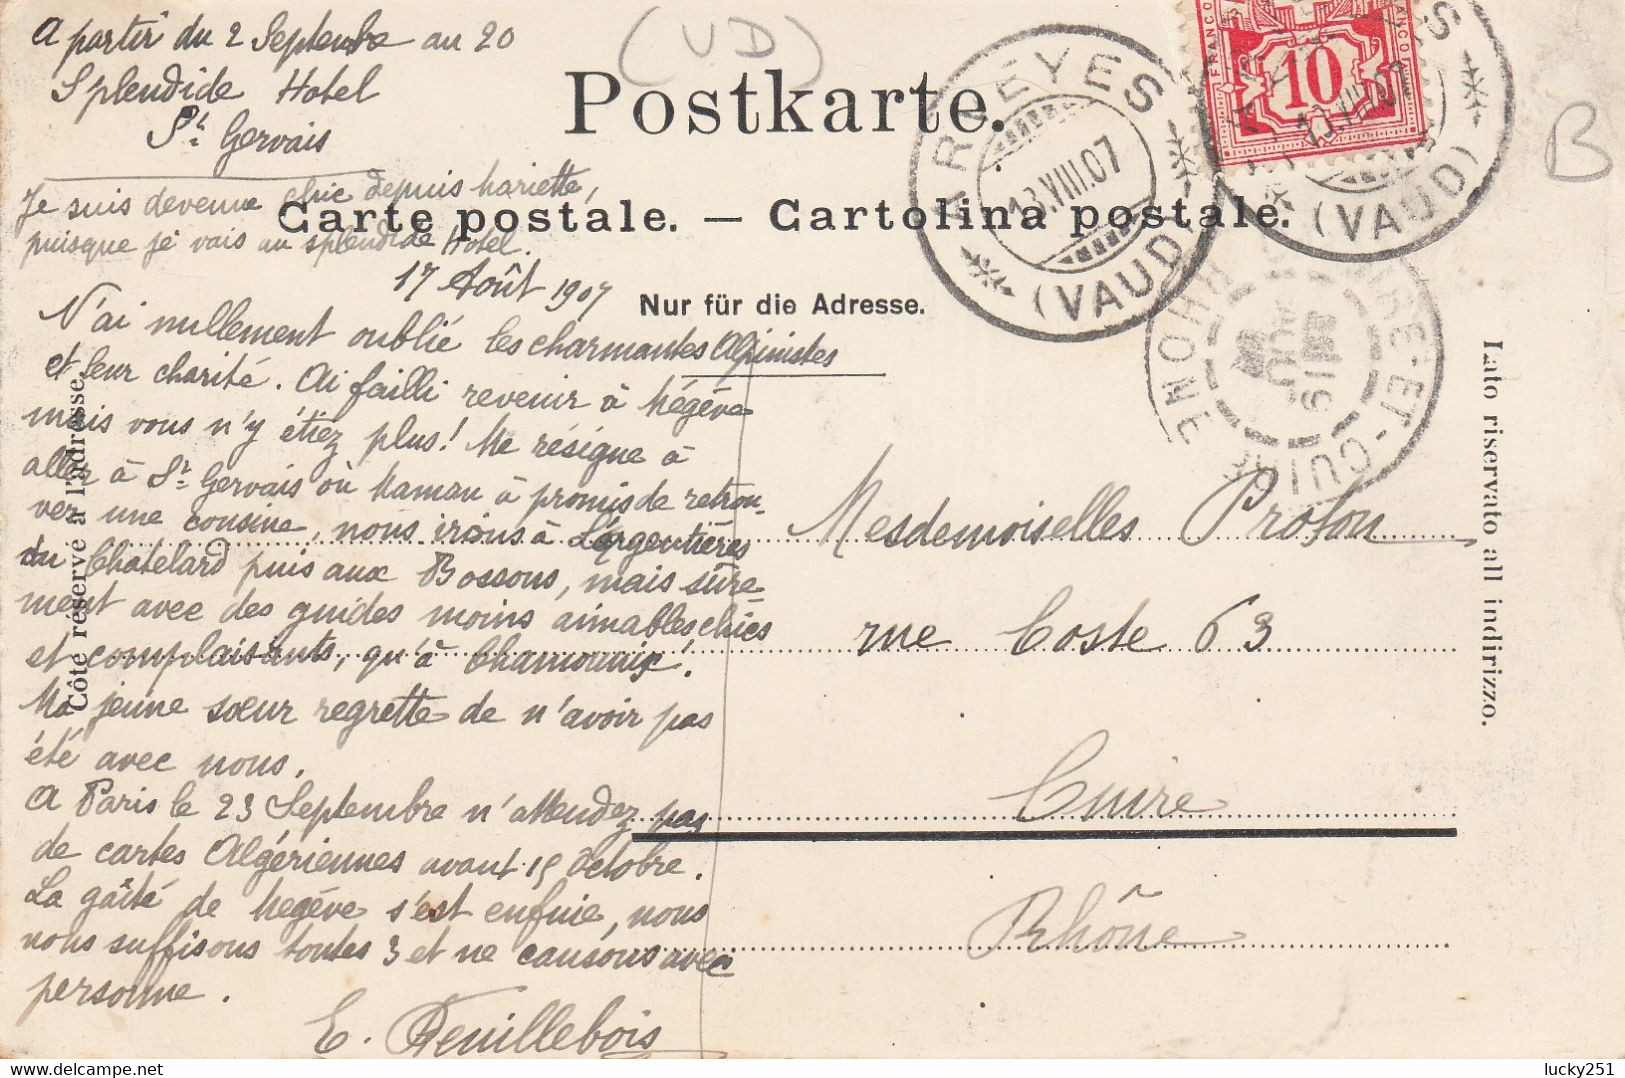 A partir du 2 Septembre au 20
Splendide Hotel
St. Gervais
Je suis devenue chic depuis hariette,
puisque je vais au splendide Hotel.
(VD)
B
Postkarte.
Carte postale. — Cartolina postale.
Nur für die Adresse.
Côté réservé à l'adresse.
Lato riservato all indirizzo.
ARVEYES
13.VIII.07
(VAUD)
FRANCO
10
13.VIII.07
(VAUD)
CUIRE-ET-CUIRE
RHONE
17 Août 1907
N'ai nullement oublié les charmantes Alpinistes
et leur charité. Ai failli revenir à Mégève
mais vous n'y étiez plus! Me résigne à
aller à St. Gervais où Maman à promis de retrou-
ver une cousine, nous irons à L'Argentières
du Chatelard puis aux Bossons, mais sûre-
ment avec des guides moins aimables chics
et complaisants, qu'à Chamounix!
Ma jeune sœur regrette de n'avoir pas
été avec nous.
A Paris le 23 Septembre n'attendez pas
de cartes Algériennes avant 15 Octobre.
La gaîté de Megève s'est enfuie, nous
nous suffisons toutes 3 et ne causons avec
personne.
E. Feuillebois
Mesdemoiselles Proton
rue Coste 63
Cuire
Rhône
lucky251